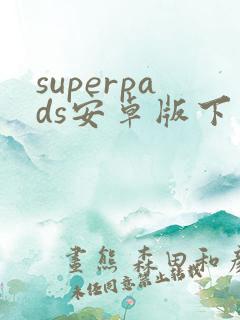 superpa
ds安卓版下
畫熊 森田和彦
未经同意禁止转载